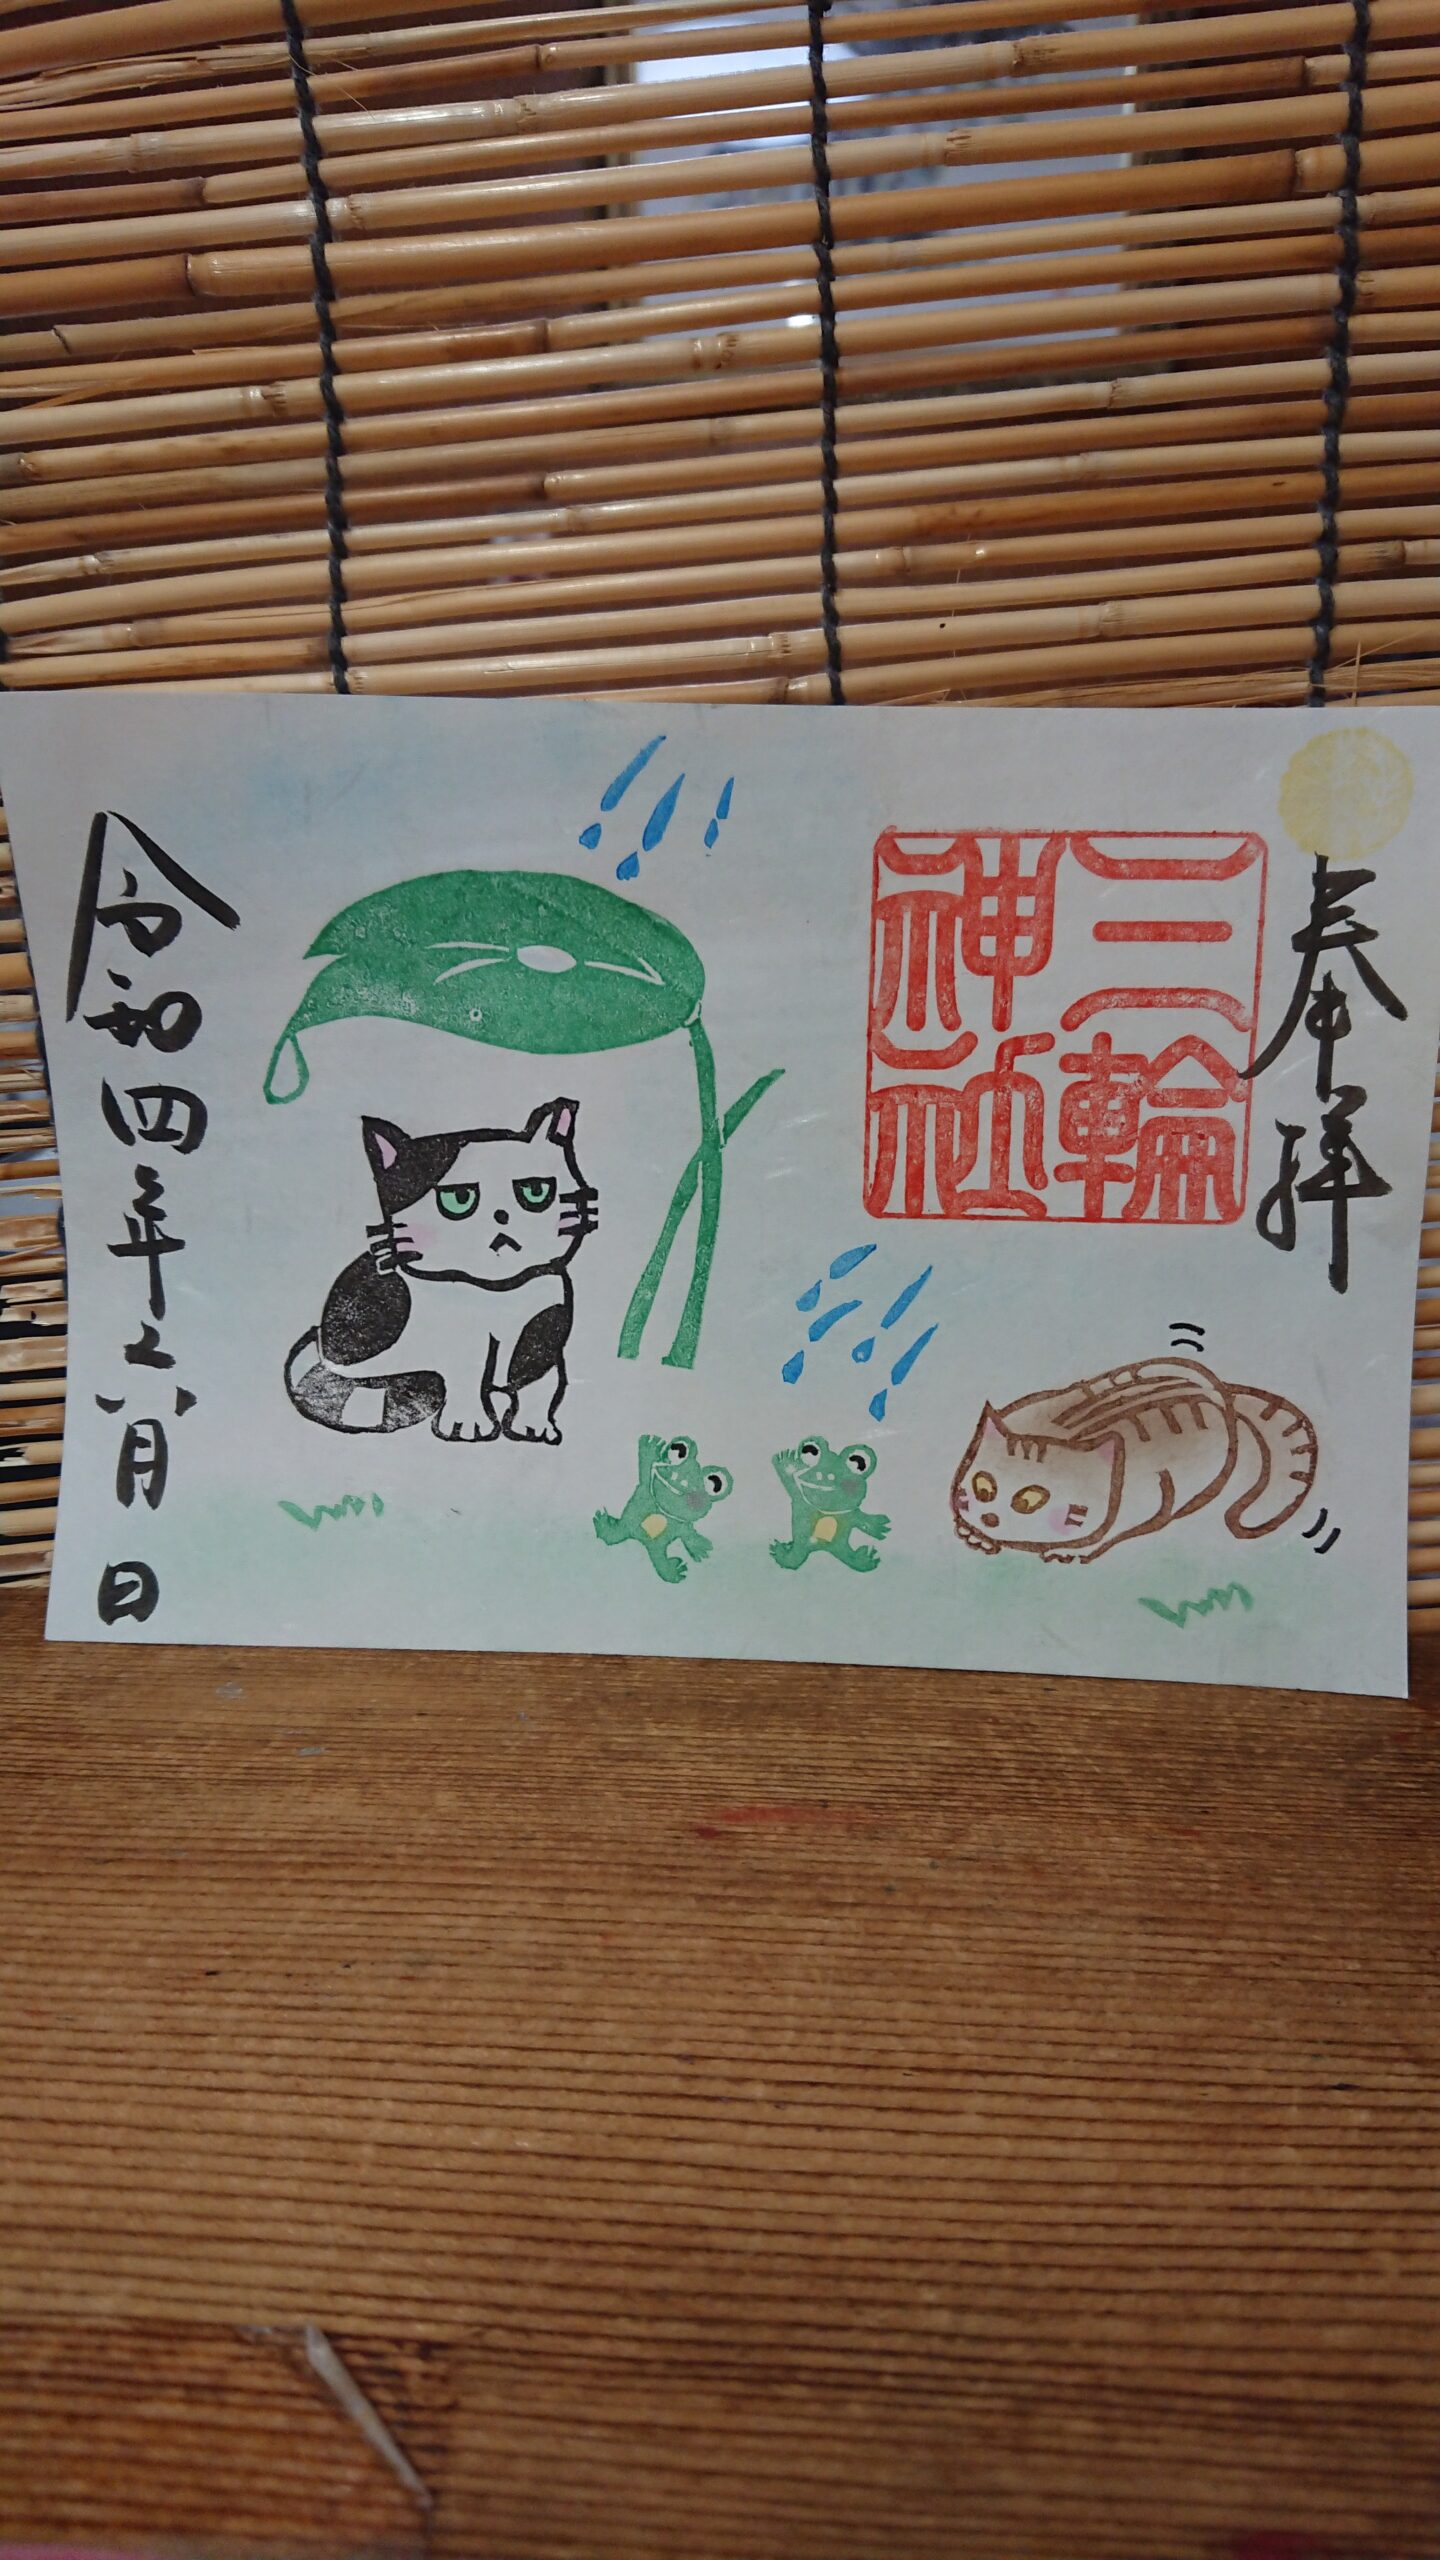 奉拝
三輪
神社
令和四年六月 日